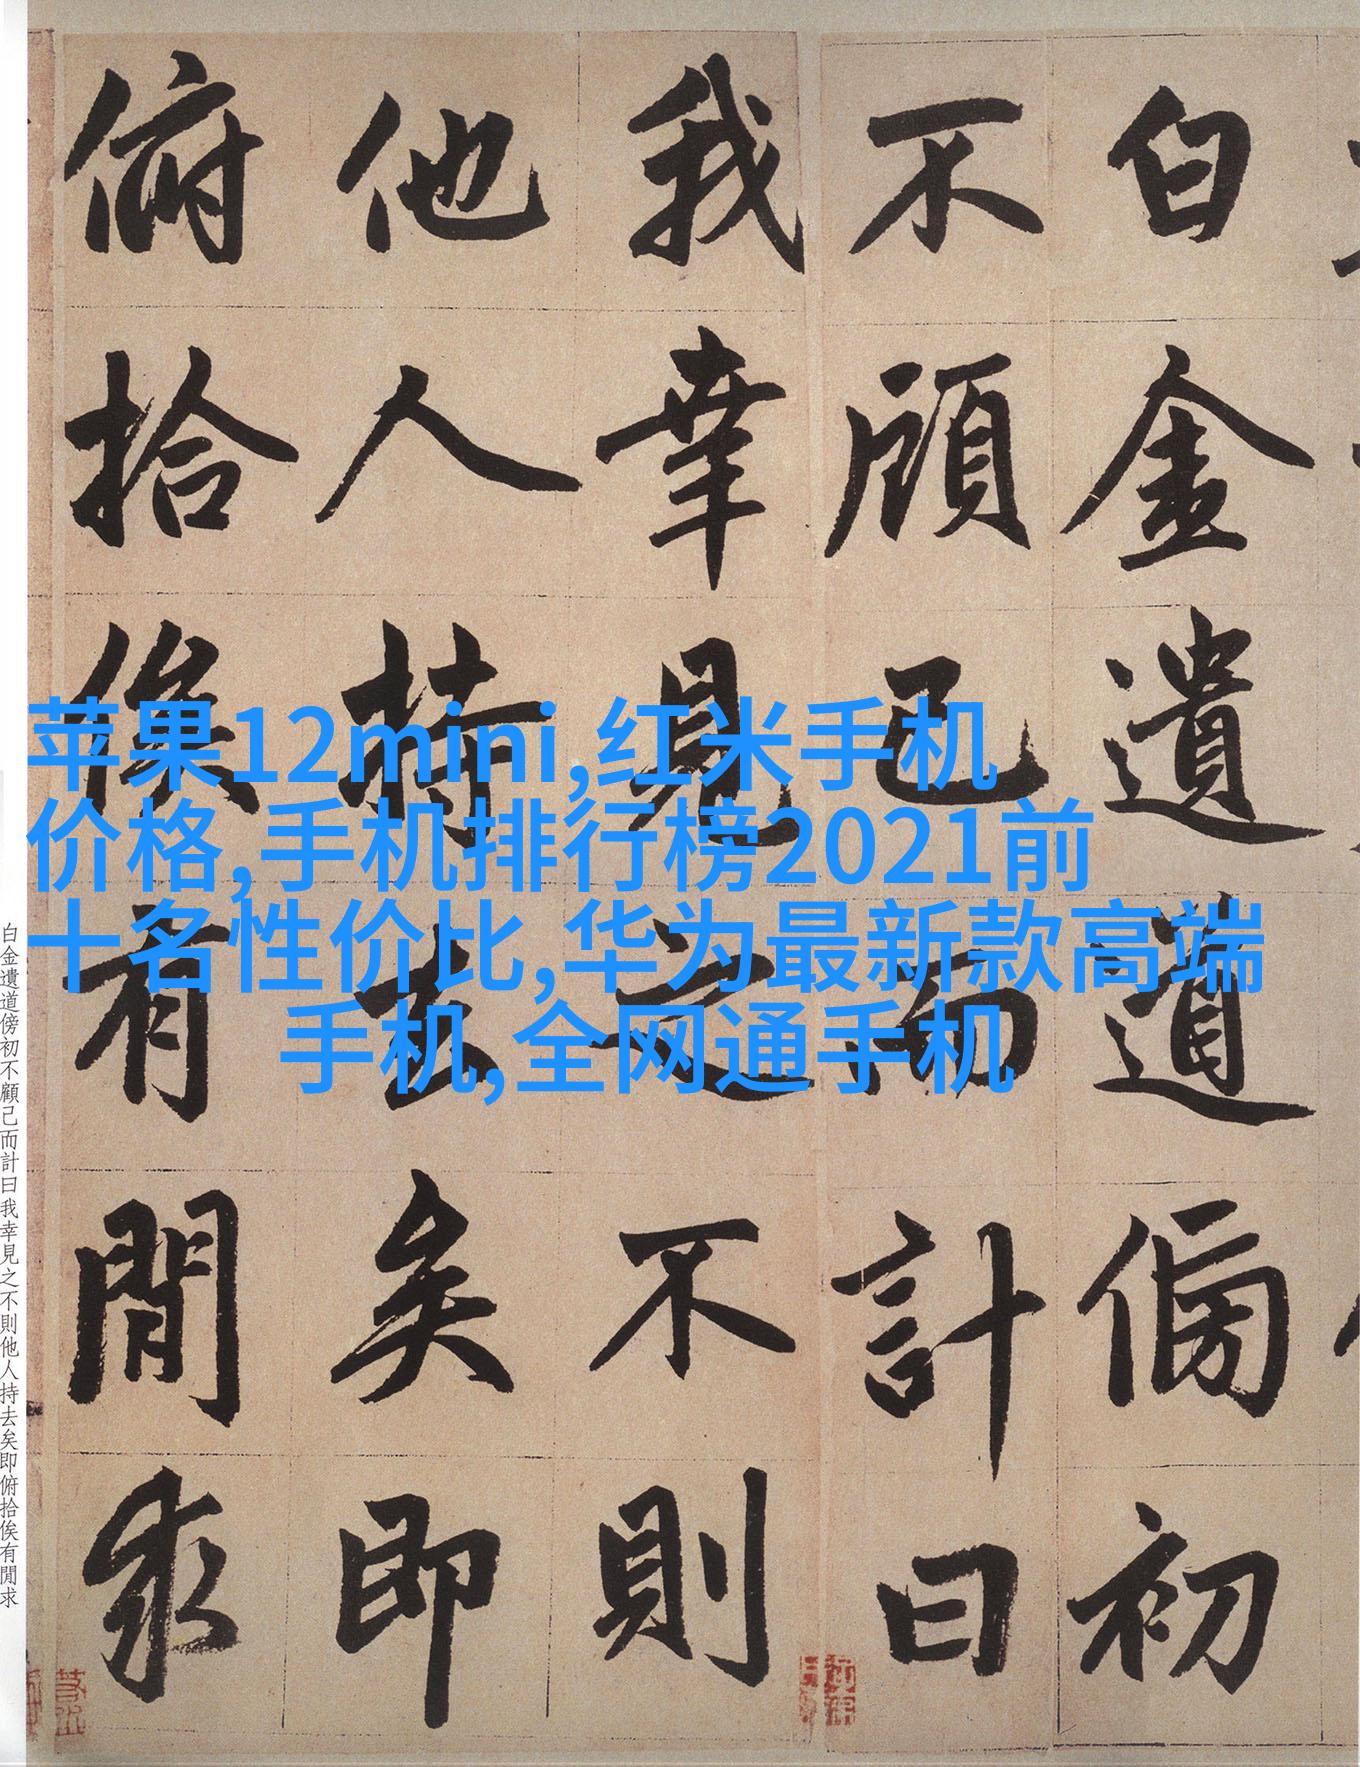 白金遺道傍初
不顧己而計曰
我幸見之不則
他人持去矣即
俯拾俟有閒求
苹果12mini,红米手机
价格,手机排行榜2021前
十名性价比,华为最新款高端
手机,全网通手机
白金遺道傍初不顧己而計曰我幸見之不則他人持去矣即俯拾俟有閒求